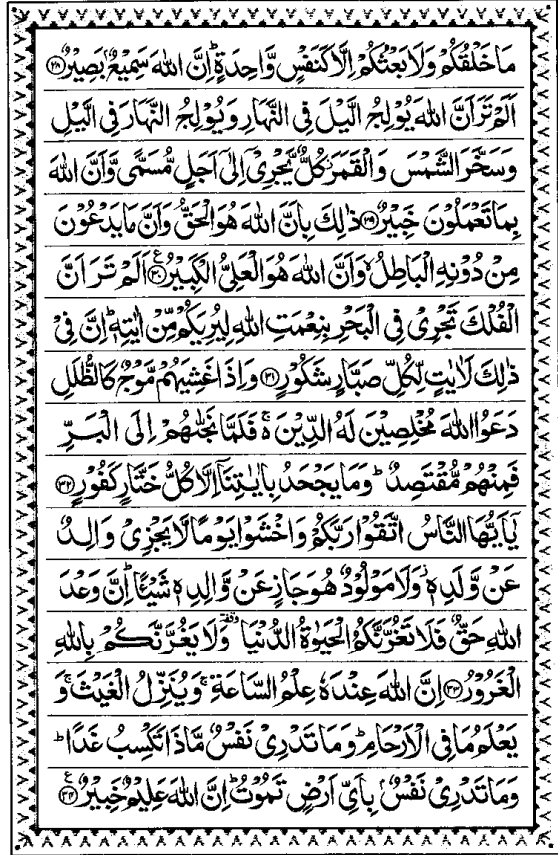 مَا خَلْقُكُمْ وَلَا بَعْثُكُمْ اِلَّا كَنَفْسٍ وَّاحِدَةٍ ؕ اِنَّ اللّٰهَ سَمِيْعٌۢ بَصِيْرٌ ﴿۲۸﴾
اَلَمْ تَرَ اَنَّ اللّٰهَ يُوْلِجُ الَّيْلَ فِى النَّهَارِ وَيُوْلِجُ النَّهَارَ فِى الَّيْلِ
وَسَخَّرَ الشَّمْسَ وَالْقَمَرَ ؗ كُلٌّ يَّجْرِىْۤ اِلٰٓى اَجَلٍ مُّسَمًّى وَّاَنَّ اللّٰهَ
بِمَا تَعْمَلُوْنَ خَبِيْرٌ ﴿۲۹﴾ ذٰلِكَ بِاَنَّ اللّٰهَ هُوَ الْحَقُّ وَاَنَّ مَا يَدْعُوْنَ
مِنْ دُوْنِهِ الْبَاطِلُ ۙ وَاَنَّ اللّٰهَ هُوَ الْعَلِىُّ الْكَبِيْرُ ﴿۳۰﴾ ع اَلَمْ تَرَ اَنَّ
الْفُلْكَ تَجْرِىْ فِى الْبَحْرِ بِنِعْمَتِ اللّٰهِ لِيُرِيَكُمْ مِّنْ اٰيٰتِهٖ ؕ اِنَّ فِىْ
ذٰلِكَ لَاٰيٰتٍ لِّكُلِّ صَبَّارٍ شَكُوْرٍ ﴿۳۱﴾ وَاِذَا غَشِيَهُمْ مَّوْجٌ كَالظُّلَلِ
دَعَوُا اللّٰهَ مُخْلِصِيْنَ لَهُ الدِّيْنَ ۚ۬ فَلَمَّا نَجّٰىهُمْ اِلَى الْبَرِّ
فَمِنْهُمْ مُّقْتَصِدٌ ؕ وَمَا يَجْحَدُ بِاٰيٰتِنَاۤ اِلَّا كُلُّ خَتَّارٍ كَفُوْرٍ ﴿۳۲﴾
يٰۤاَيُّهَا النَّاسُ اتَّقُوْا رَبَّكُمْ وَاخْشَوْا يَوْمًا لَّا يَجْزِىْ وَالِدٌ
عَنْ وَّلَدِهٖ ؗ وَلَا مَوْلُوْدٌ هُوَ جَازٍ عَنْ وَّالِدِهٖ شَيْـًٔا ؕ اِنَّ وَعْدَ
اللّٰهِ حَقٌّ فَلَا تَغُرَّنَّكُمُ الْحَيٰوةُ الدُّنْيَا ۥ وقفة وَلَا يَغُرَّنَّكُمْ بِاللّٰهِ
الْغَرُوْرُ ﴿۳۳﴾ اِنَّ اللّٰهَ عِنْدَهٗ عِلْمُ السَّاعَةِ ۚ وَيُنَزِّلُ الْغَيْثَ ۚ وَ
يَعْلَمُ مَا فِى الْاَرْحَامِ ؕ وَمَا تَدْرِىْ نَفْسٌ مَّاذَا تَكْسِبُ غَدًا ؕ
وَمَا تَدْرِىْ نَفْسٌۢ بِاَىِّ اَرْضٍ تَمُوْتُ ؕ اِنَّ اللّٰهَ عَلِيْمٌ خَبِيْرٌ ﴿۳۴﴾ ع